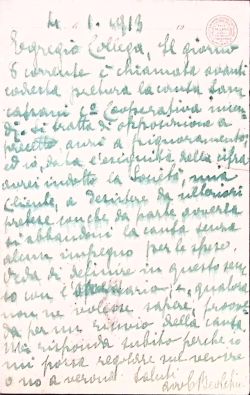 4. 1. 1913
Egregio Collega, Il giorno
6 corrente è chiamata avanti
codesta pretura la causa
Cooperativa
si tratta di opposizione a
precetto, anzi a pignoramento,
ed io, data l'esiguità della cifra
avrei indotto la Società, mia
Cliente, a desistere da ulteriori
pretese, purchè da parte avversa
si abbandoni la causa senza
alcun impegno per le spese.
Veda di definire in questo sen
so con l'avversario e, qualora
non ne volesse sapere, provve
da per un rinvio della causa
Mi risponda subito perchè io
mi possa regolare sul venire
o no a Verona. Saluti
avv